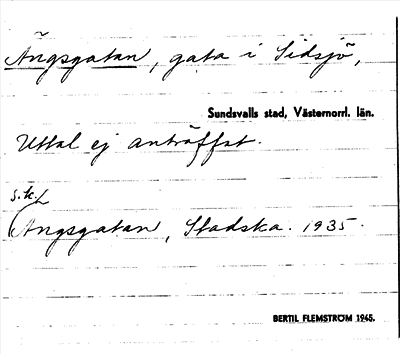 Ängsgatan, gata i Sidsjö,
Sundsvalls stad, Västernorrl. län.
Uttal ej anträffat.
s.k.
Ängsgatan, Stadska. 1935.
BERTIL FLEMSTRÖM 1945.